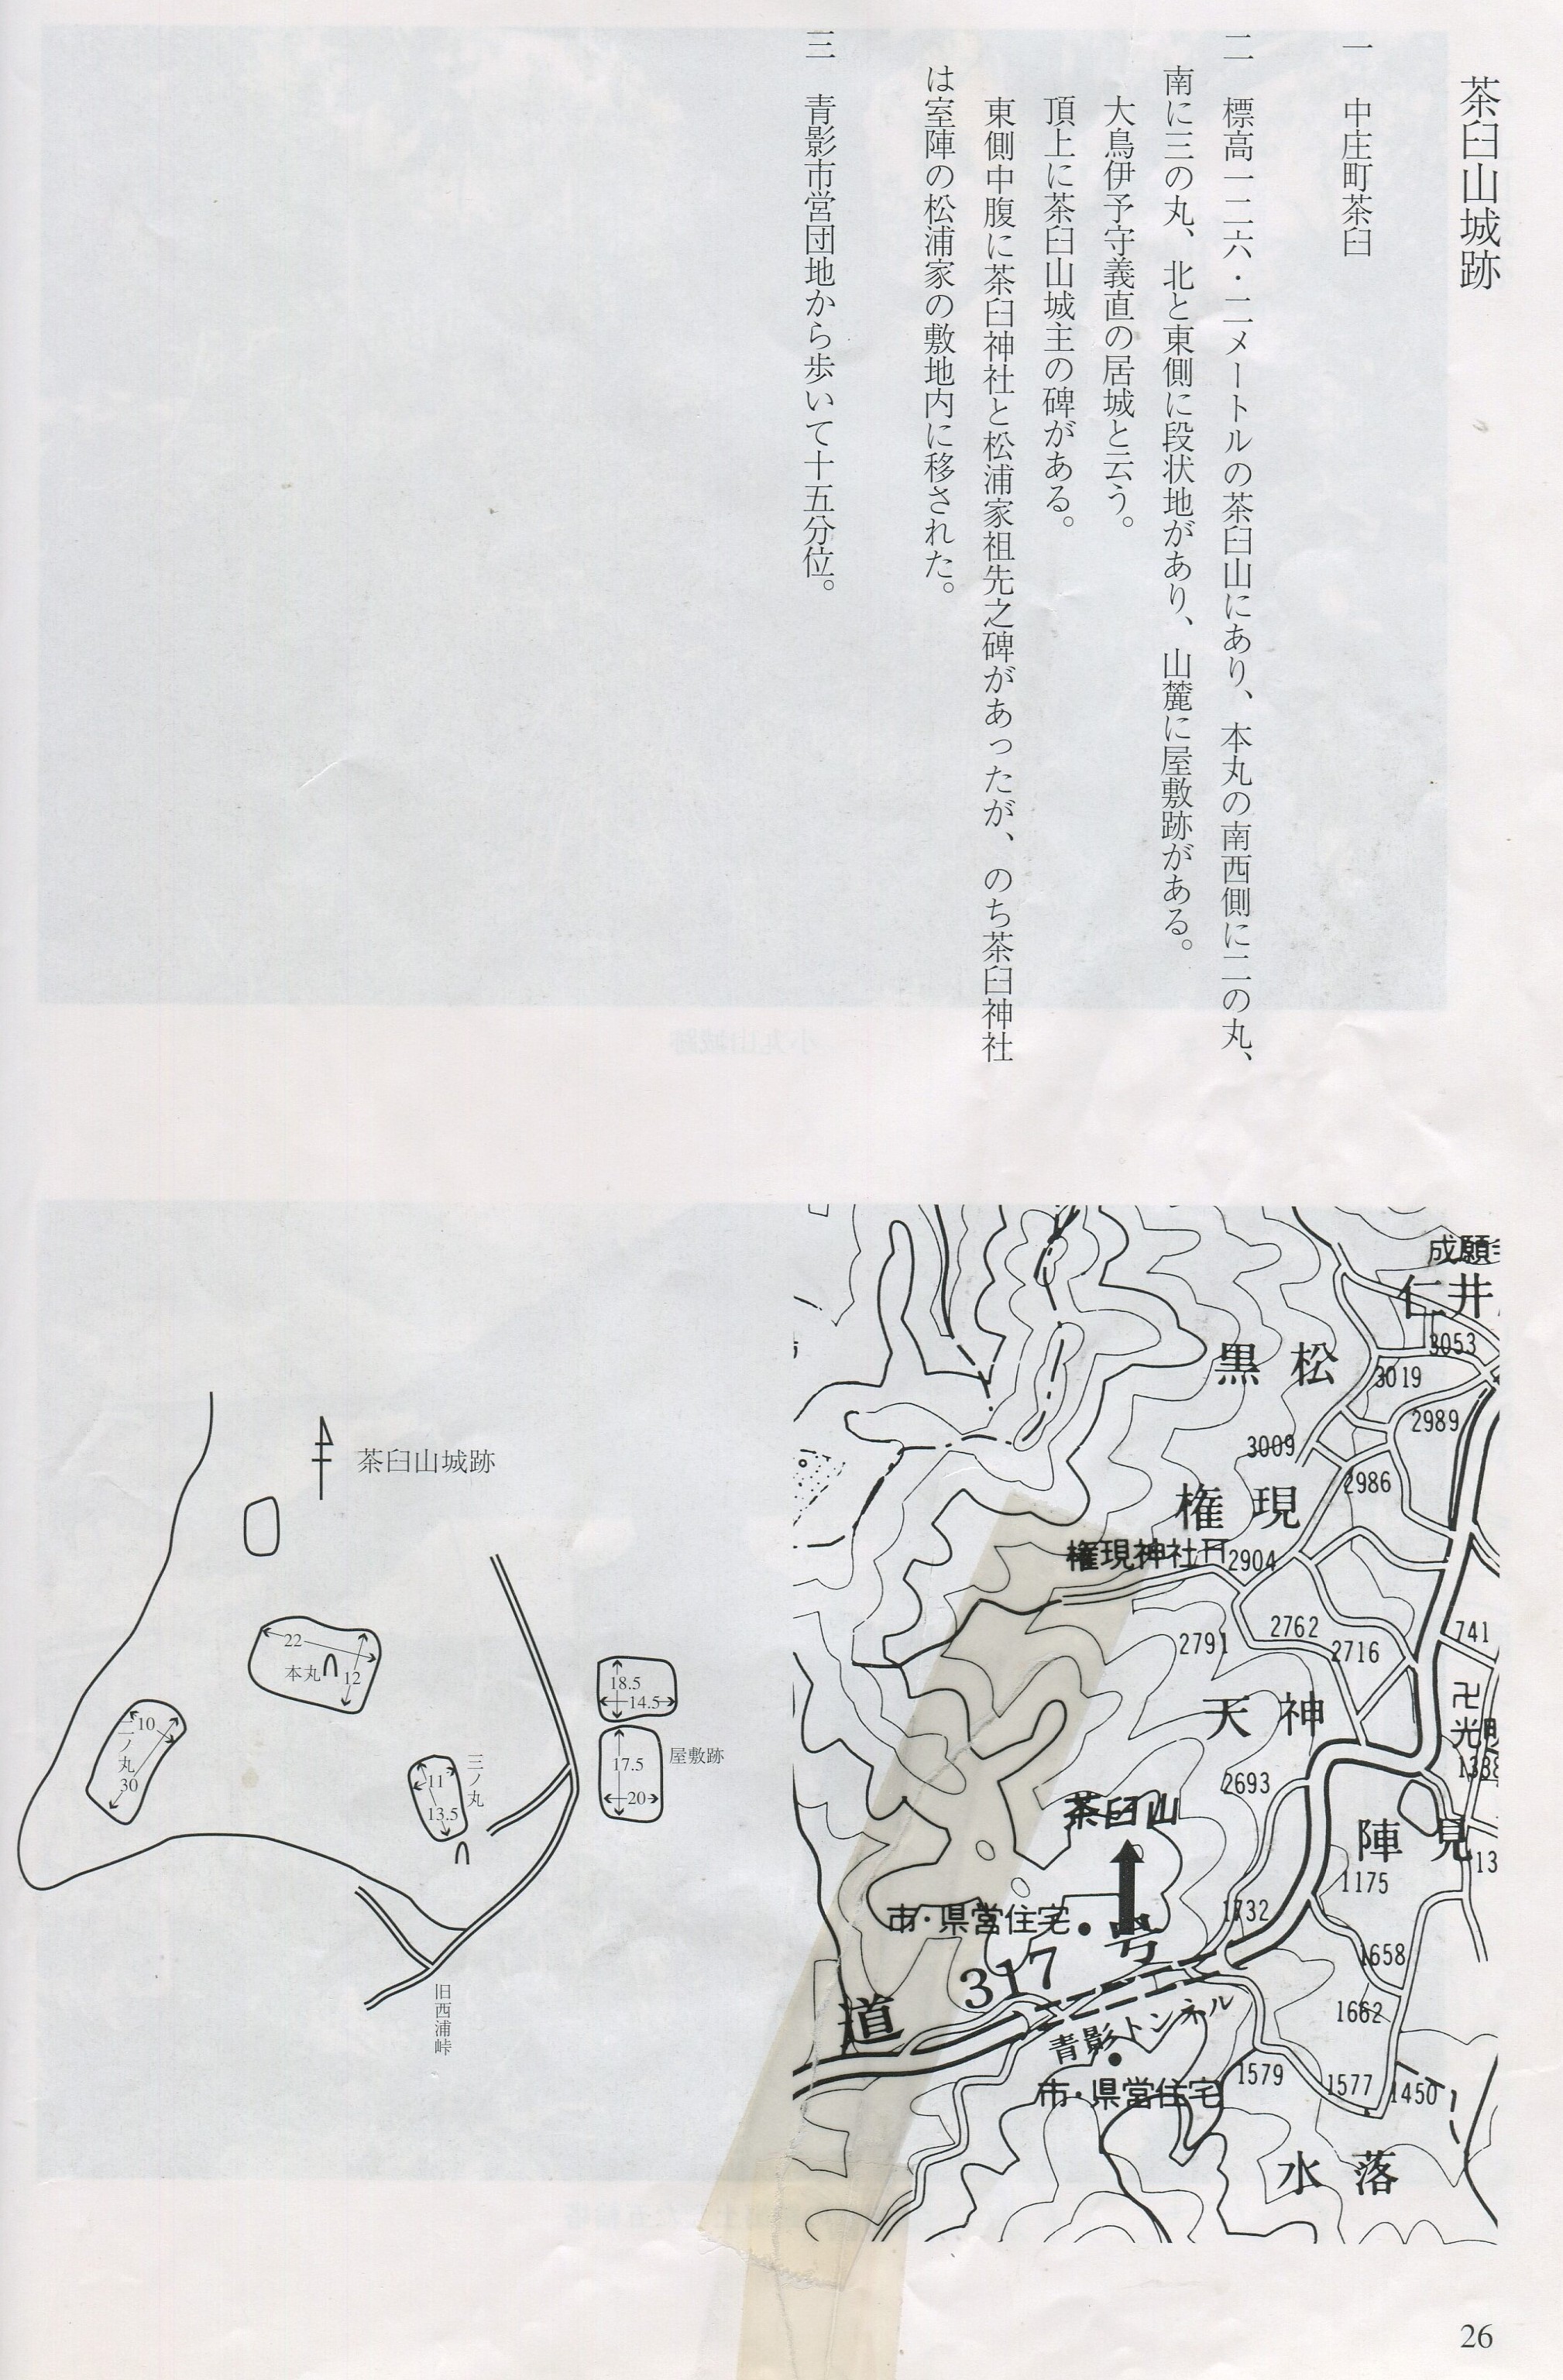 茶臼山城跡
一　中庄町茶臼
二　標高一二六・二メートルの茶臼山にあり、本丸の南西側に二の丸、
南に三の丸、北と東側に段状地があり、山麓に屋敷跡がある。
大鳥伊予守義直の居城と云う。
頂上に茶臼山城主の碑がある。
東側中腹に茶臼神社と松浦家祖先之碑があったが、のち茶臼神社
は室陣の松浦家の敷地内に移された。
三　青影市営団地から歩いて十五分位。
成願
仁井
3053
黒松
3019
2989
3009
2986
権現
権現神社
2904
2791
2762
2716
741
天神
卍光明
2693
1338
茶臼山
陣見
13
1175
市・県営住宅
1732
号
317
道
1658
1662
青影トンネル
市・県営住宅
1579
1577
1450
水落
茶臼山城跡
22
本丸
12
10
二ノ丸
30
11
13.5
三ノ丸
18.5
14.5
17.5
20
屋敷跡
旧西浦峠
26